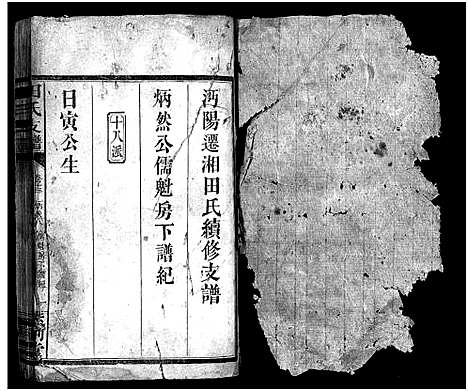 沔陽遷湘田氏續修支譜
炳然公儒魁房下譜紀
十八派
日寅公生
田氏支譜